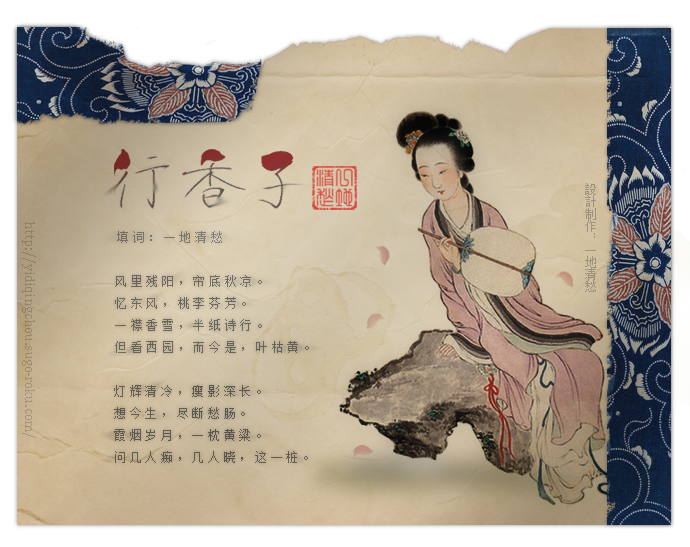 行香子
填词：一地清愁
风里残阳，帘底秋凉。
忆东风，桃李芬芳。
一襟香雪，半纸诗行。
但看西园，而今是，叶枯黄。
灯辉清冷，瘦影深长。
想今生，尽断愁肠。
霞烟岁月，一枕黄粱。
问几人痴，几人晓，这一桩。
設計制作：一地清愁